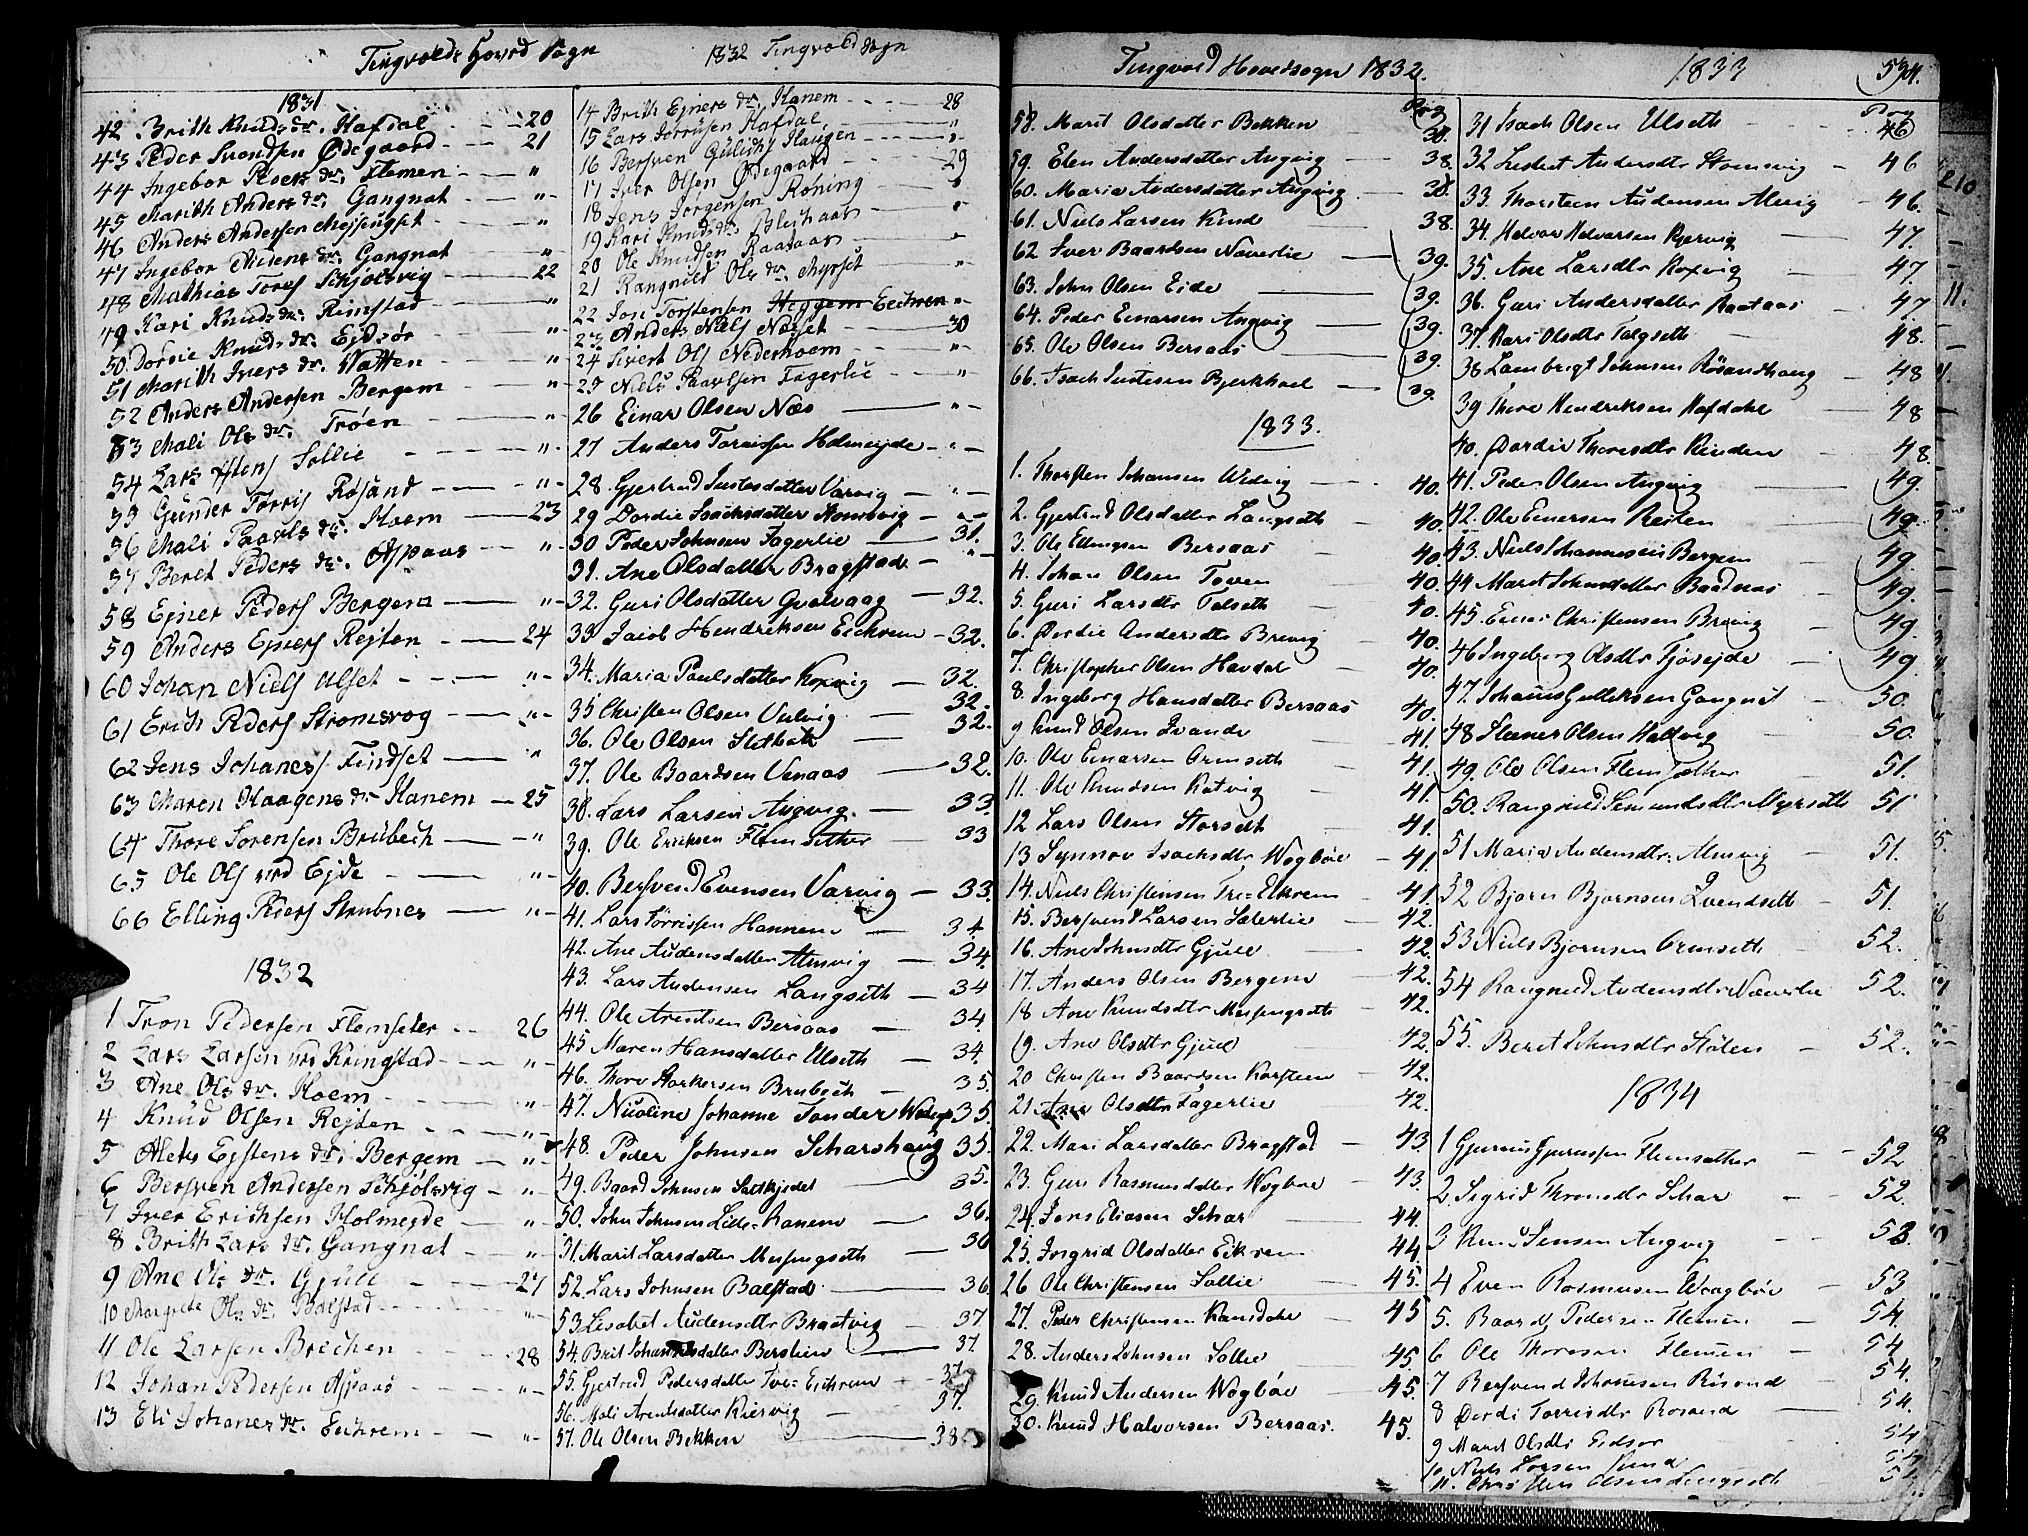 Tingvolds Hoved Sogn
1832 Tingvold Sogn
1831
42 Brith Knuds dr. Hafdal - - - 20
43 Peder Svendsen Ødegaard - - - 21
44 Ingebor Peders dr. Flemen - - - "
45 Marith Anders dr. Gangnat - - "
46 Anders Andersen Mejsingset - - "
47 Ingebor Audens dr. Gangnat "
48 Mathias Tores Schjølsvig - - 22
49 Kari Knuds dr. Rimstad - - "
50 Dordie Knuds dr. Ejdsør - - "
51 Marith Ivers dr. Watten - - "
52 Anders Andersen Bergem - - "
53 Mali Ols dr. Trøen - - "
54 Lars Sollie - - "
55 Gunder Torris Røsand - - "
56 Mali Paavls dr. Hoem - - 23
57 Beret Peders dr. Aspaas - - "
58 Ejner Peders Bergem - - "
59 Anders Ejners Rejten - - 24
60 Johan Niels Ulset - - "
61 Erich Peders Stromsvog - - "
62 Jens Johanes Findset - - "
63 Maren Haagens dr. Hanem - 25
64 Thore Sorensen Brubech - - "
65 Ole Ols Ejde - - "
66 Elling Peders Strubnes - - "
1832
1 Tron Pedersen Flemseter - - 26
2 Lars Larsen Kringstad - - "
3 Ane Ols dr. Hoem - - "
4 Knud Olsen Rejten - - "
5 Alets Ejstens dr. Bergem - "
6 Bersven Andersen Schjølsvig - "
7 Iver Erichsen Holmejde - - "
8 Brith Lars dr. Gangnat - - "
9 Ane Ols dr. Gjull - - 27
10 Margrete Ols dr. Balstad - - "
11 Ole Larsen Brechen - - 28
12 Johan Pedersen Aspaas - - "
13 Eli Johanes dr. Eichrem - - "
14 Brith Ejners dr. Hanem - - 28
15 Lars Torrisen Hafdal - - "
16 Bersven Gulichs Haugen - "
17 Iver Olsen Ødegaard - - 29
18 Jens Jørgensen Røning - "
19 Kari Knuds dr. Bleihaar - "
20 Ole Knudsen Raataas - "
21 Rangnild Ols dr. Myrset - "
22 Jon Torstensen Heggem Eichrem "
23 Anders Niels Næset - 30
24 Sivert Ols Nederhoem - "
25 Niels Paavlsen Fagerlie - "
26 Einar Olsen Næs - "
27 Anders Torrissen Holmejde - "
28. Gjertrud Justesdatter Varvig - "
29 Dordie Isachsdatter Stomsvig - "
30 Peder Johnsen Fagerlie - 31.
31. Ane Olsdatter Bragstad - "
32. Guri Olsdatter Qvalvaag - 32.
33 Jacob Hendriksen Eichrem - 32.
34. Maria Paulsdatter Koxvig - 32.
35 Christen Olsen Vulvig - 32.
36. Ole Olsen Sletbak - 32.
37. Ole Baardsen Venaas - 32.
38. Lars Larsen Angvig - 33
39. Ole Eriksen Flemsether 33
40. Bersvend Evensen Varvig - 33.
41. Lars Torrissen Hannem - 34
42. Ane Audensdatter Almsvig - 34.
43. Lars Audensen Langseth - 34
44. Ole Arentsen Bersaas - 34.
45 Maren Hansdatter Ulseth - 34.
46. Thore Storkersen Brubech - 35
47. Nicoline Johanne Tander 35.
48. Peder Johnsen Scharshaug 35.
49. Baard Johnsen Saltkjelet - 35.
50. John Johnsen Lille-Hanem - 36.
51 Marit Larsdatter Mesingseth - 36
52. Lars Johnsen Balstad - 36
53 Lisabet Audensdtr Bratvig - 37
54. Brit Johannesdatter Berslien - 37
55. Gjertrud Pedersdatter Tre-Eichrem - 37
56. Mali Arentsdatter Kiersvig - 37.
57. Ole Olsen Bekken - 38
Tingvold Hovedsogn 1832.
Pag
58. Marit Olsdatter Bekken 38.
59. Elen Andersdatter Angvig - 38.
60. Maria Andersdatter Angvig - 38.
61. Niels Larsen Kind 38.
62 Iver Baardsen Naverlie - 39.
63. John Olsen Eide - 39.
64. Peder Einarsen Angvig - 39.
65. Ole Olsen Bersaas - 39.
66. Isach Justesen Bjerkhoel - 39.
1833.
1. Thorsten Johansen Wedvig - 40.
2. Gjertrud Olsdatter Langseth - 40.
3. Ole Ellingsen Bersaas - 40.
4. Johan Olsen Toven - 40.
5. Guri Larsdtr Talseth - 40.
6. Dordie Andersdtr Brevig - 40.
7. Christopher Olsen Havdal - 40.
8. Ingeborg Hansdatter Bersaas 40.
9 Knud Olsen Zvande - 41.
10. Ole Einarsen Ormseth - 41.
11. Ole Knudsen Kotvig - 41.
12 Lars Olsen Storseth - 41.
13 Synnov Isachsdtr Wogbøe - 41.
14. Niels Christensen Tre-Eikrem - 41.
15. Bersvend Larsen Sæterlie - 42.
16. Ane Johnsdtr Gjull - 42.
17. Anders Olsen Bergem - 42.
18 Ane Knudsdtr Mesingseth - 42.
19. Ane Olsdtr Gjull - 42.
20 Christen Baardsen Karsteen - 42.
21 Ane Olsdtr Fagerlie 42.
22. Mari Larsdatter Bragstad - 43.
23. Guri Rasmusdatter Wogbøe - 43.
24. Jens Eliasen Schar - 44.
25. Ingrid Olsdatter Eikrem 44.
26 Ole Christensen Sollie - 45.
27. Peder Christensen Kamsdahl 45
28. Anders Johnsen Sollie - 45.
29. Knud Andersen Wogbøe - 45.
30. Knud Halvorsen Bersaas. 45.
1833
594.
Pag
31 Isach Olsen Ulseth - 46
32 Lisbet Andersdtr Stomsvig - 46
33. Thorsteen Audensen Alvig - 46.
34. Halvor Halvorsen Kjervig - 47.
35. Ane Larsdtr Koxvig - 47.
36. Guri Andersdatter Raataas - 47
37. Kari Olsdtr Talgseth 48.
38 Lambrigt Johnsen Røsandhaug - 48
39 Thore Hendriksen Hafdahl - 48
40. Dordie Thoresdtr Kinden - 48.
41. Peder Olsen Angvig - 49.
42. Ole Einersen Reiten - 49.
43. Niels Johannesen Bergem - 49.
44 Maret Johnsdatter Baadnæs - 49.
45. Einer Christensen Brevig - 49.
46 Ingeborg Olsdtr Fjøsejde - 49.
47. Johannes Gulleksen Gangnat - 50.
48 Steener Olsen Haltvig - 50.
49. Ole Olsen Flemsæther - 51.
50. Rangnild Semundsdtr Myrseth 51
51 Maria Audensdtr Almvig - 51.
52 Bjørn Bjørnsen Qvendseth - 51.
53 Niels Bjørnsen Ormseth - 52.
54 Rangnild Audensdtr Naverlie 52.
55. Beret Johnsdtr Stølen - 52.
1834
1 Gjermund Flemsæther - - 52
2. Sigrid Thronsdtr Schar - 52.
3 Knud Jensen Angvig - - 53.
4 Even Rasmusen Woagbøe - 53
5. Baard Pedersen Flemen - 54.
6 Ole Thoresen Flemen - 54
7 Bersvend Johansen Røsand - 54.
8 Dordi Torrisdtr Rosand - 54.
9 Marit Olsdtr Eidsør 54
10 Niels Larsen Kind 54
11. Christen Olsen Langseth 54